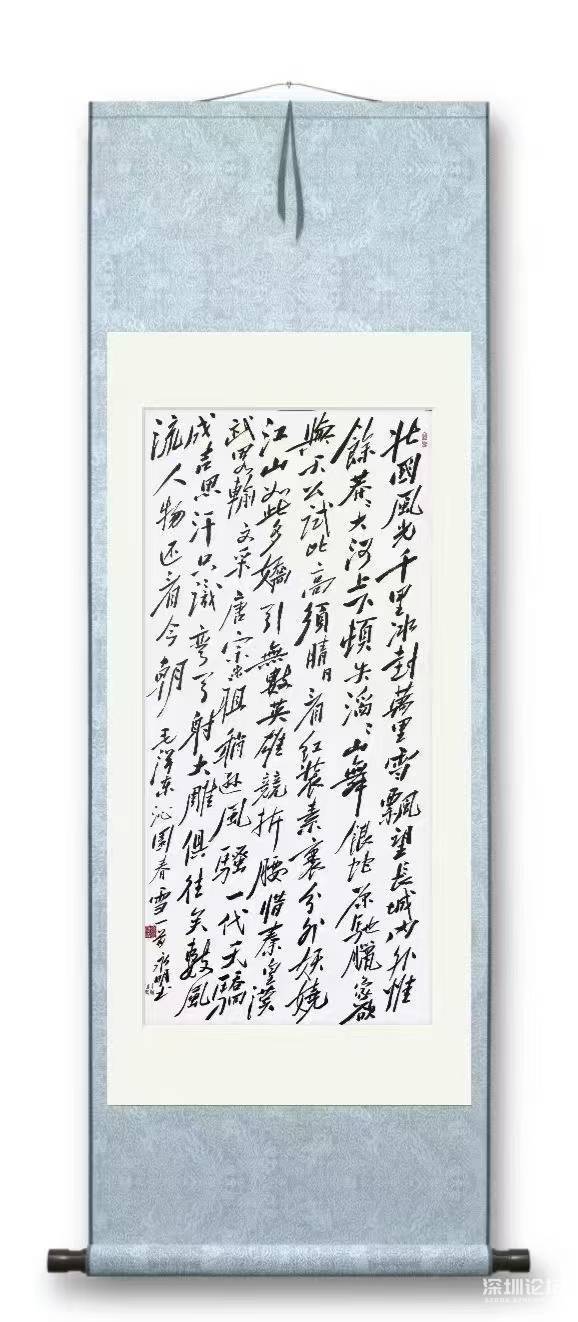 北國風光千里冰封萬里雪飄望長城內外惟
餘莽、大河上下頓失滔、山舞銀蛇原馳臘象欲
與天公試比高須晴日看紅裝素裹分外妖嬈
江山如此多嬌引無數英雄競折腰惜秦皇漢
武略輸文采唐宗宋祖稍遜風騷一代天驕
成吉思汗只識彎弓射大雕俱往矣數風
流人物还看今朝 毛泽东沁园春雪一首永明书
深圳论坛